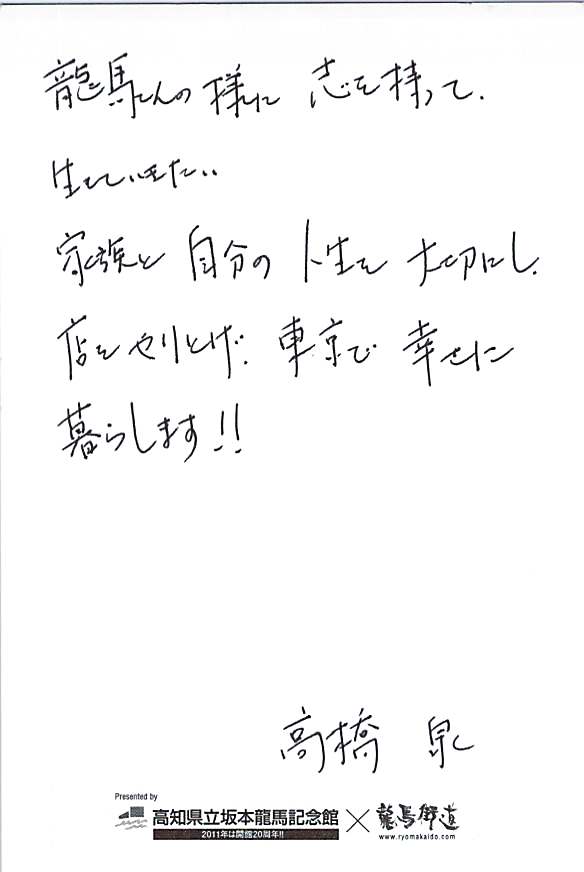 龍馬さんの様に 志を持って、
生きていきたい。
家族と 自分の 人生を 大切にし、
店を やりとげ、東京で 幸せに
暮らします!!
高橋 泉
Presented by
高知県立坂本龍馬記念館 × 龍馬街道
2011年は開館20周年!!
www.ryomakaido.com